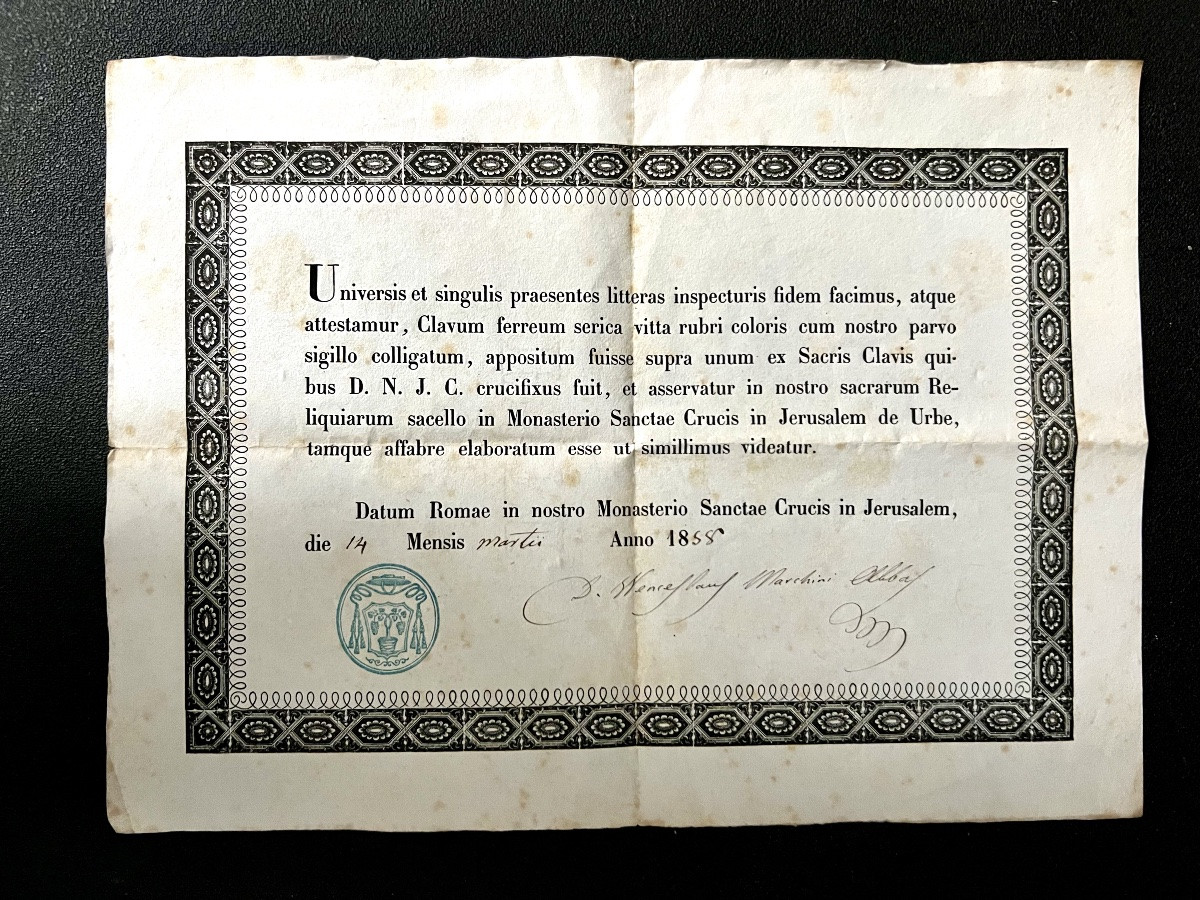 Universis et singulis praesentes litteras inspecturis fidem facimus, atque
attestamur, Clavum ferreum serica vitta rubri coloris cum nostro parvo
sigillo colligatum, appositum fuisse supra unum ex Sacris Clavis qui-
bus D. N. J. C. crucifixus fuit, et asservatur in nostro sacrarum Re-
liquiarum sacello in Monasterio Sanctae Crucis in Jerusalem de Urbe,
tamque affabre elaboratum esse ut simillimus videatur.
Datum Romae in nostro Monasterio Sanctae Crucis in Jerusalem,
die 14 Mensis martii Anno 1858
D. Wenceslaus Marchini Abbas